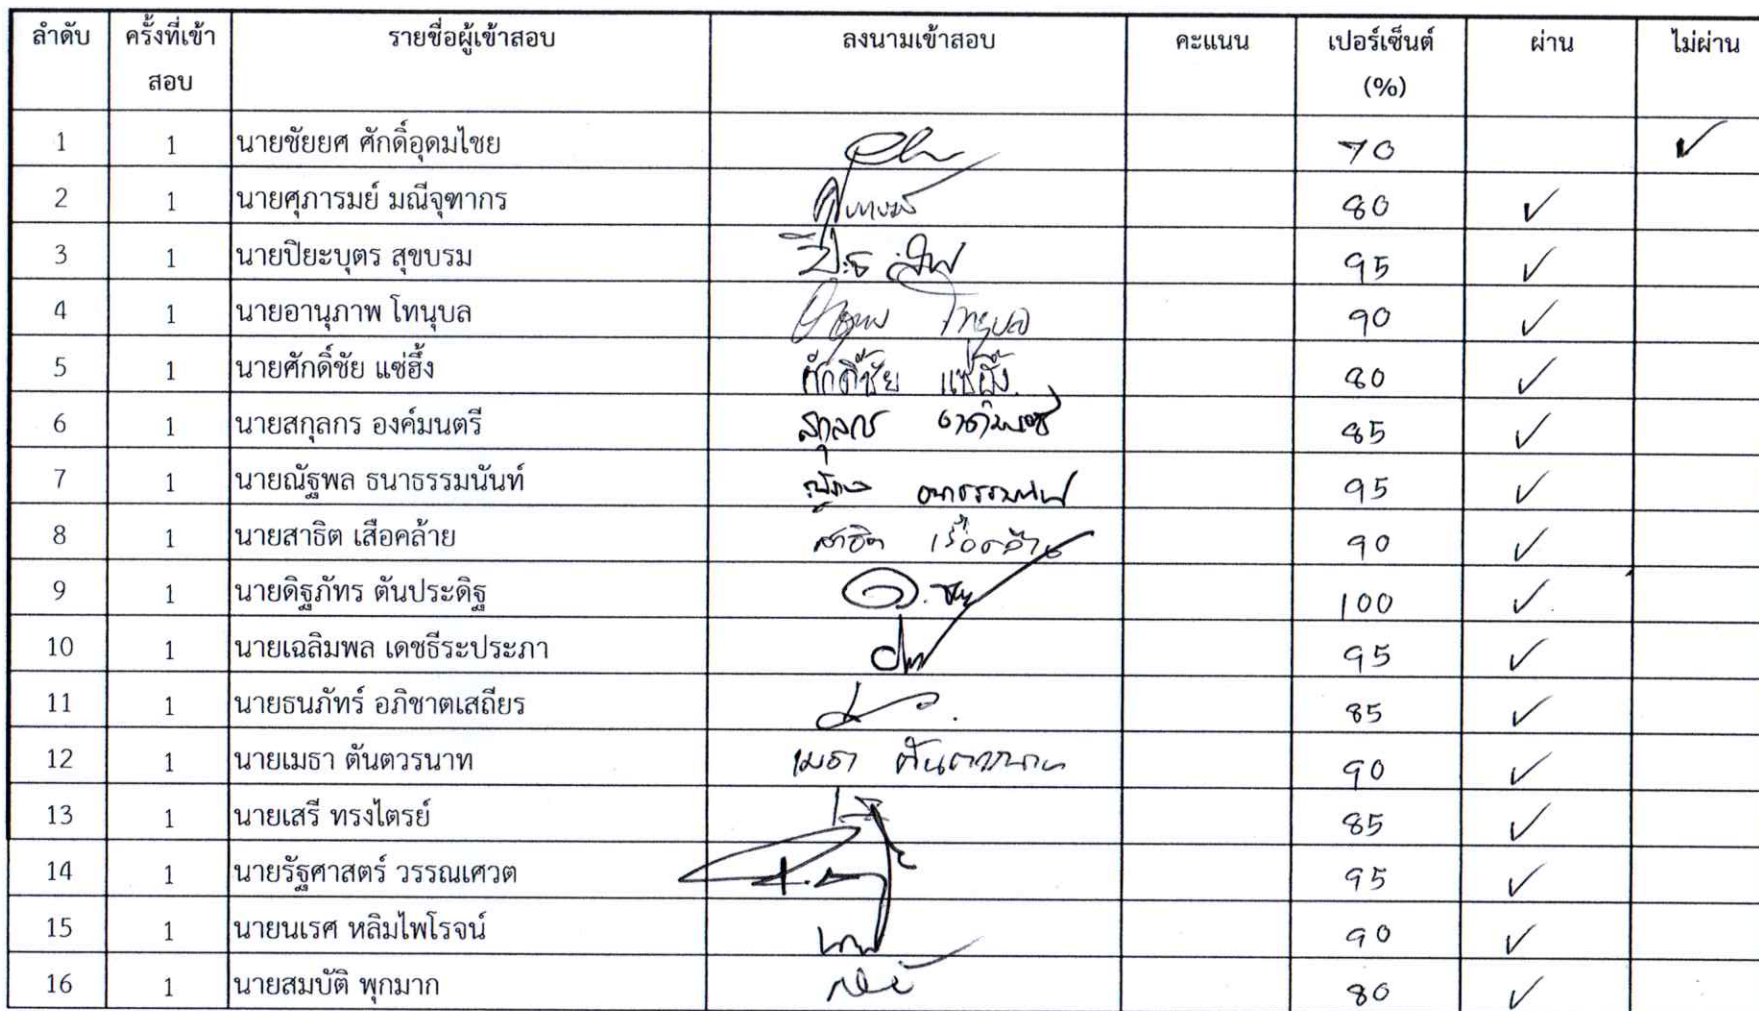 ลำดับ ครั้งที่เข้าสอบ รายชื่อผู้เข้าสอบ ลงนามเข้าสอบ คะแนน เปอร์เซ็นต์ (%) ผ่าน ไม่ผ่าน
1 1 นายชัยยศ ศักดิ์อุดมไชย 70 ✓
2 1 นายศุภารมย์ มณีจุฑากร 80 ✓
3 1 นายปิยะบุตร สุขบรม 95 ✓
4 1 นายอานุภาพ โทนุบล 90 ✓
5 1 นายศักดิ์ชัย แซ่ฮึ้ง ศักดิ์ชัย แซ่ฮึ้ง 80 ✓
6 1 นายสกุลกร องค์มนตรี สกุลกร 85 ✓
7 1 นายณัฐพล ธนาธรรมนันท์ 95 ✓
8 1 นายสาธิต เสือคล้าย สาธิต เสือคล้าย 90 ✓
9 1 นายดิฐภัทร ตันประดิฐ 100 ✓
10 1 นายเฉลิมพล เดชธีระประภา 95 ✓
11 1 นายธนภัทร์ อภิชาตเสถียร 85 ✓
12 1 นายเมธา ตันตวรนาท เมธา ตันตวรนาท 90 ✓
13 1 นายเสรี ทรงไตรย์ 85 ✓
14 1 นายรัฐศาสตร์ วรรณเศวต 95 ✓
15 1 นายนเรศ หลิมไพโรจน์ 90 ✓
16 1 นายสมบัติ พุกมาก 80 ✓